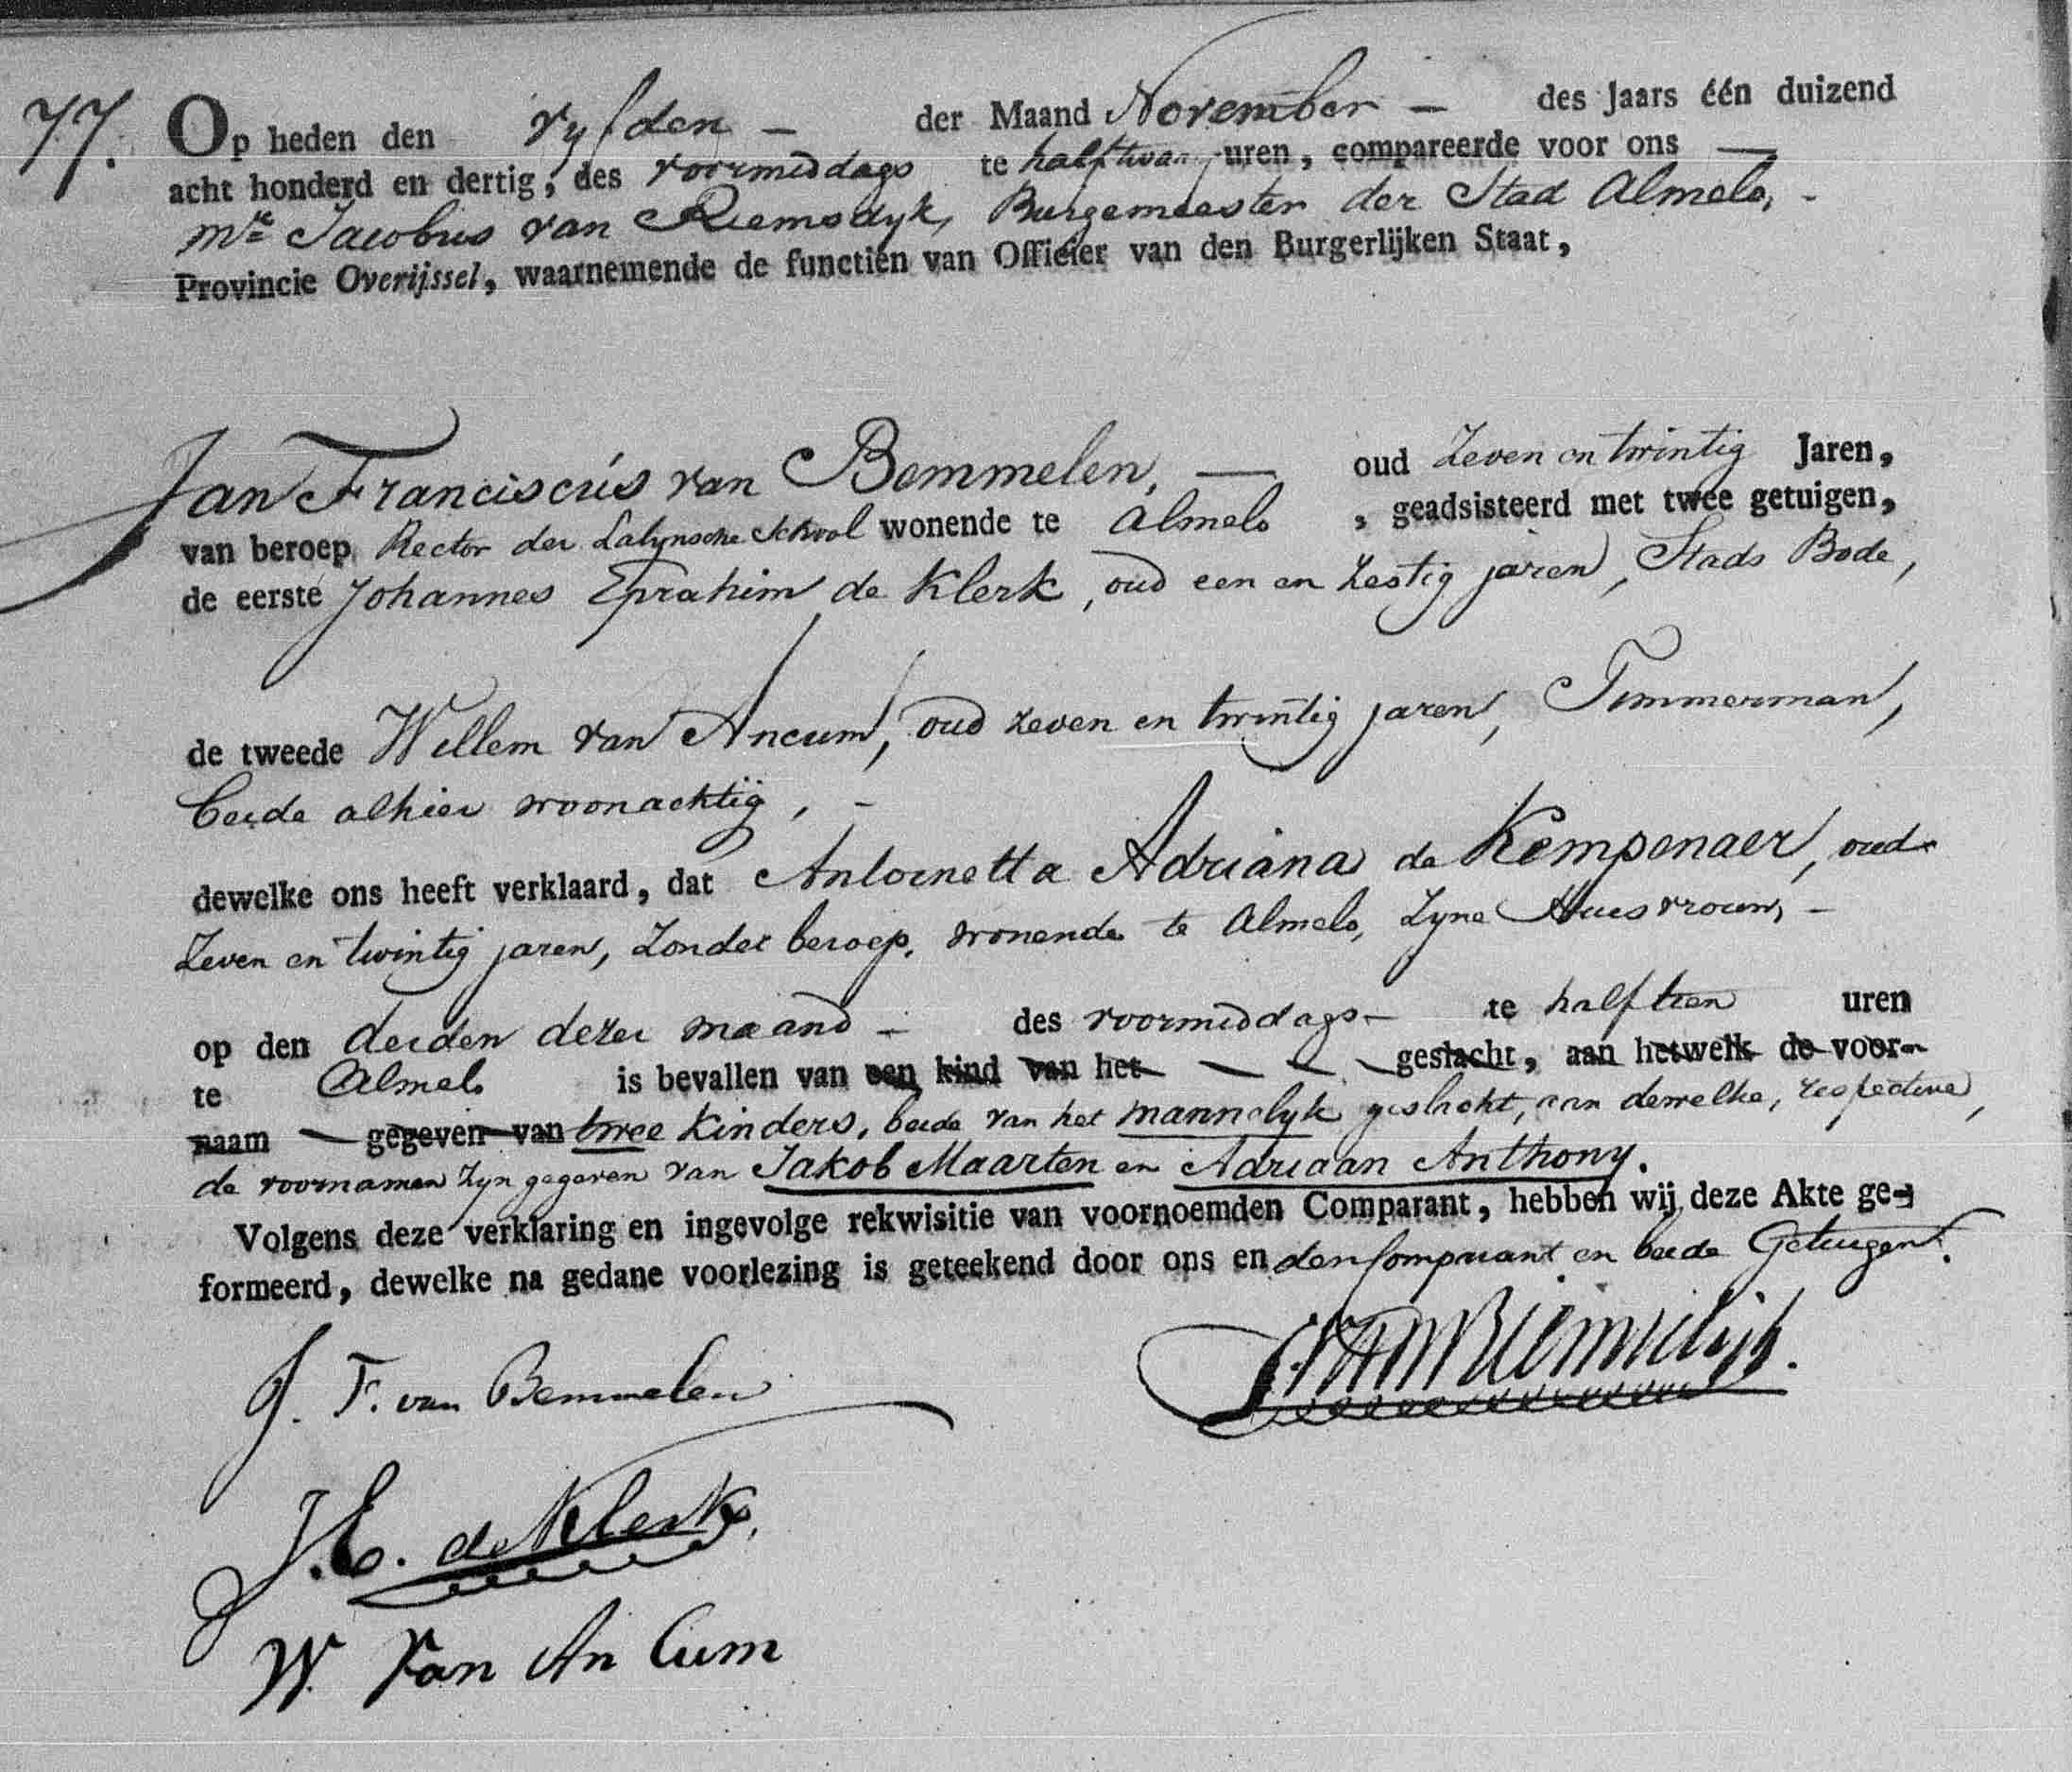 77. Op heden den vyfden - der Maand November - des Jaars één duizend
acht honderd en dertig, des voormiddags te half twaalf uren, compareerde voor ons —
Mr. Jacobus van Riemsdyk, Burgemeester der Stad Almelo, -
Provincie Overijssel, waarnemende de functiën van Officier van den Burgerlijken Staat,
Jan Franciscus van Bemmelen, — oud Zeven en twintig Jaren,
van beroep Rector der Latynsche School wonende te Almelo, geadsisteerd met twee getuigen,
de eerste Johannes Ephrahim de Klerk, oud een en Zestig jaren, Stads Bode,
de tweede Willem van Ancum, oud zeven en twintig jaren, Timmerman,
beide alhier woonachtig, -
dewelke ons heeft verklaard, dat Antoinetta Adriana de Kempenaer, oud
Zeven en twintig jaren, Zonder beroep, wonende te Almelo, Zyne Huisvrouw, -
op den derden dezer maand - des voormiddags - te half tien uren
te Almelo is bevallen van een kind van het - - - geslacht, aan hetwelk de voor-
naam - gegeven van twee Kinders, beide van het mannelyk geslacht, aan dewelke, respective,
de voornamen Zyn gegeven van Jakob Maarten en Adriaan Anthony.
Volgens deze verklaring en ingevolge rekwisitie van voornoemden Comparant, hebben wij deze Akte ge-
formeerd, dewelke na gedane voorlezing is geteekend door ons en den Comparant en beide Getuigen.
J. F. van Bemmelen
J. van Riemsdijk.
J. E. de Klerk,
W. Van An Cum